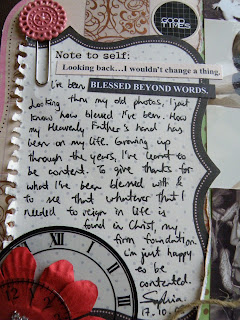 GOOD
TIMES
Note to self:
Looking back...I wouldn't change a thing.
I've been BLESSED BEYOND WORDS.
Looking thru my old photos, I just
know how blessed I've been. How
my Heavenly Father's hand has
been on my life. Growing up
through the years, I've learnt to
be content. To give thanks for
what I've been blessed with &
to see that whatever that I
needed to reign in life is
found in Christ, my
firm foundation.
I'm just happy
to be
contented.
Sophia
17.10.
XII
XI
I
X
II
III